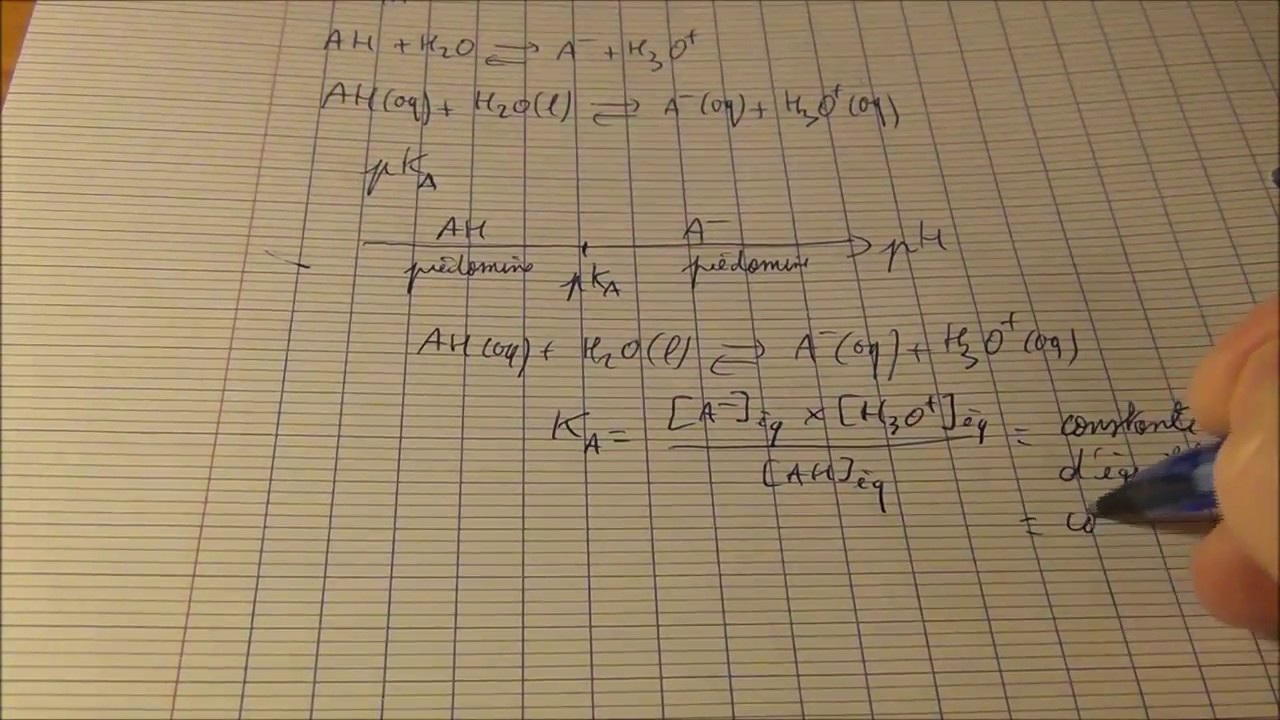 AH + H₂O ⇌ A⁻ + H₃O⁺
AH(aq) + H₂O(l) ⇌ A⁻(aq) + H₃O⁺(aq)
pK_A
AH A⁻ pH
prédomine pK_A prédomine
AH(aq) + H₂O(l) ⇌ A⁻(aq) + H₃O⁺(aq)
K_A = [A⁻]éq × [H₃O⁺]éq / [AH]éq = constante
= co